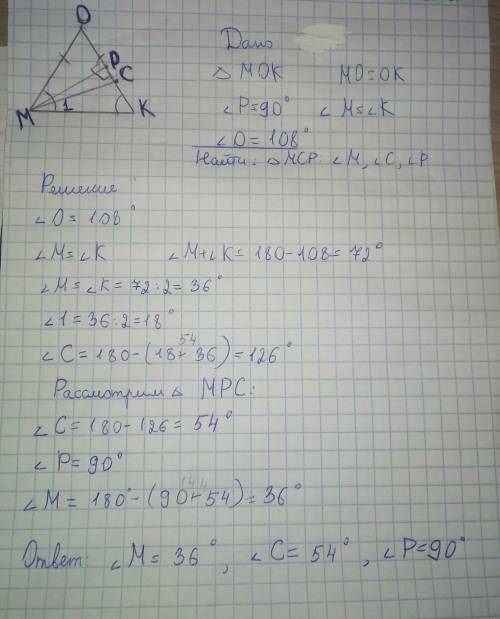 O
P
C
M 1 K
Дано
△ MOK MO=OK
∠P=90° ∠M=∠K
∠O=108°
Найти: △MCP: ∠M, ∠C, ∠P
Решение
∠O=108°
∠M=∠K ∠M+∠K=180-108=72°
∠M=∠K=72:2=36°
∠1=36:2=18°
54
∠C=180-(18+36)=126°
Рассмотрим △ MPC:
∠C=180-126=54°
∠P=90°
144
∠M=180°-(90+54)=36°
Ответ: ∠M=36°, ∠C=54°, ∠P=90°